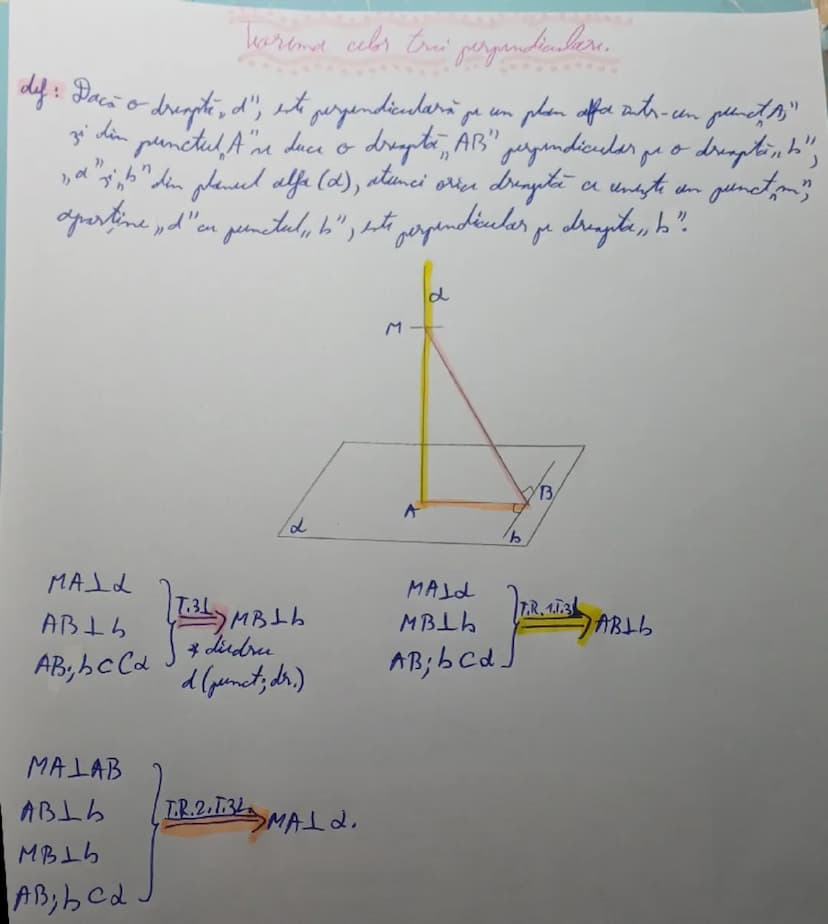 Teorema celor trei perpendiculare.
def: Dacă o dreaptă „d", este perpendiculară pe un plan alfa într-un punct „A"
și din punctul „A" se duce o dreaptă „AB" perpendicular pe o dreaptă „b",
„a" și „b" din planul alfa (α), atunci orice dreaptă ce unește un punct „m",
aparține „d" cu punctul „b", este perpendicular pe dreapta „b".
d
M
A
B
α
b
MA⊥α
AB⊥b
AB;b⊂(α
T.3⊥
MB⊥b
* diedru
d(punct; dr.)
MA⊥α
MB⊥b
AB;b⊂α
T.R.1.T.3⊥
AB⊥b
MA⊥AB
AB⊥b
MB⊥b
AB;b⊂α
T.R.2.T.3⊥
MA⊥α.